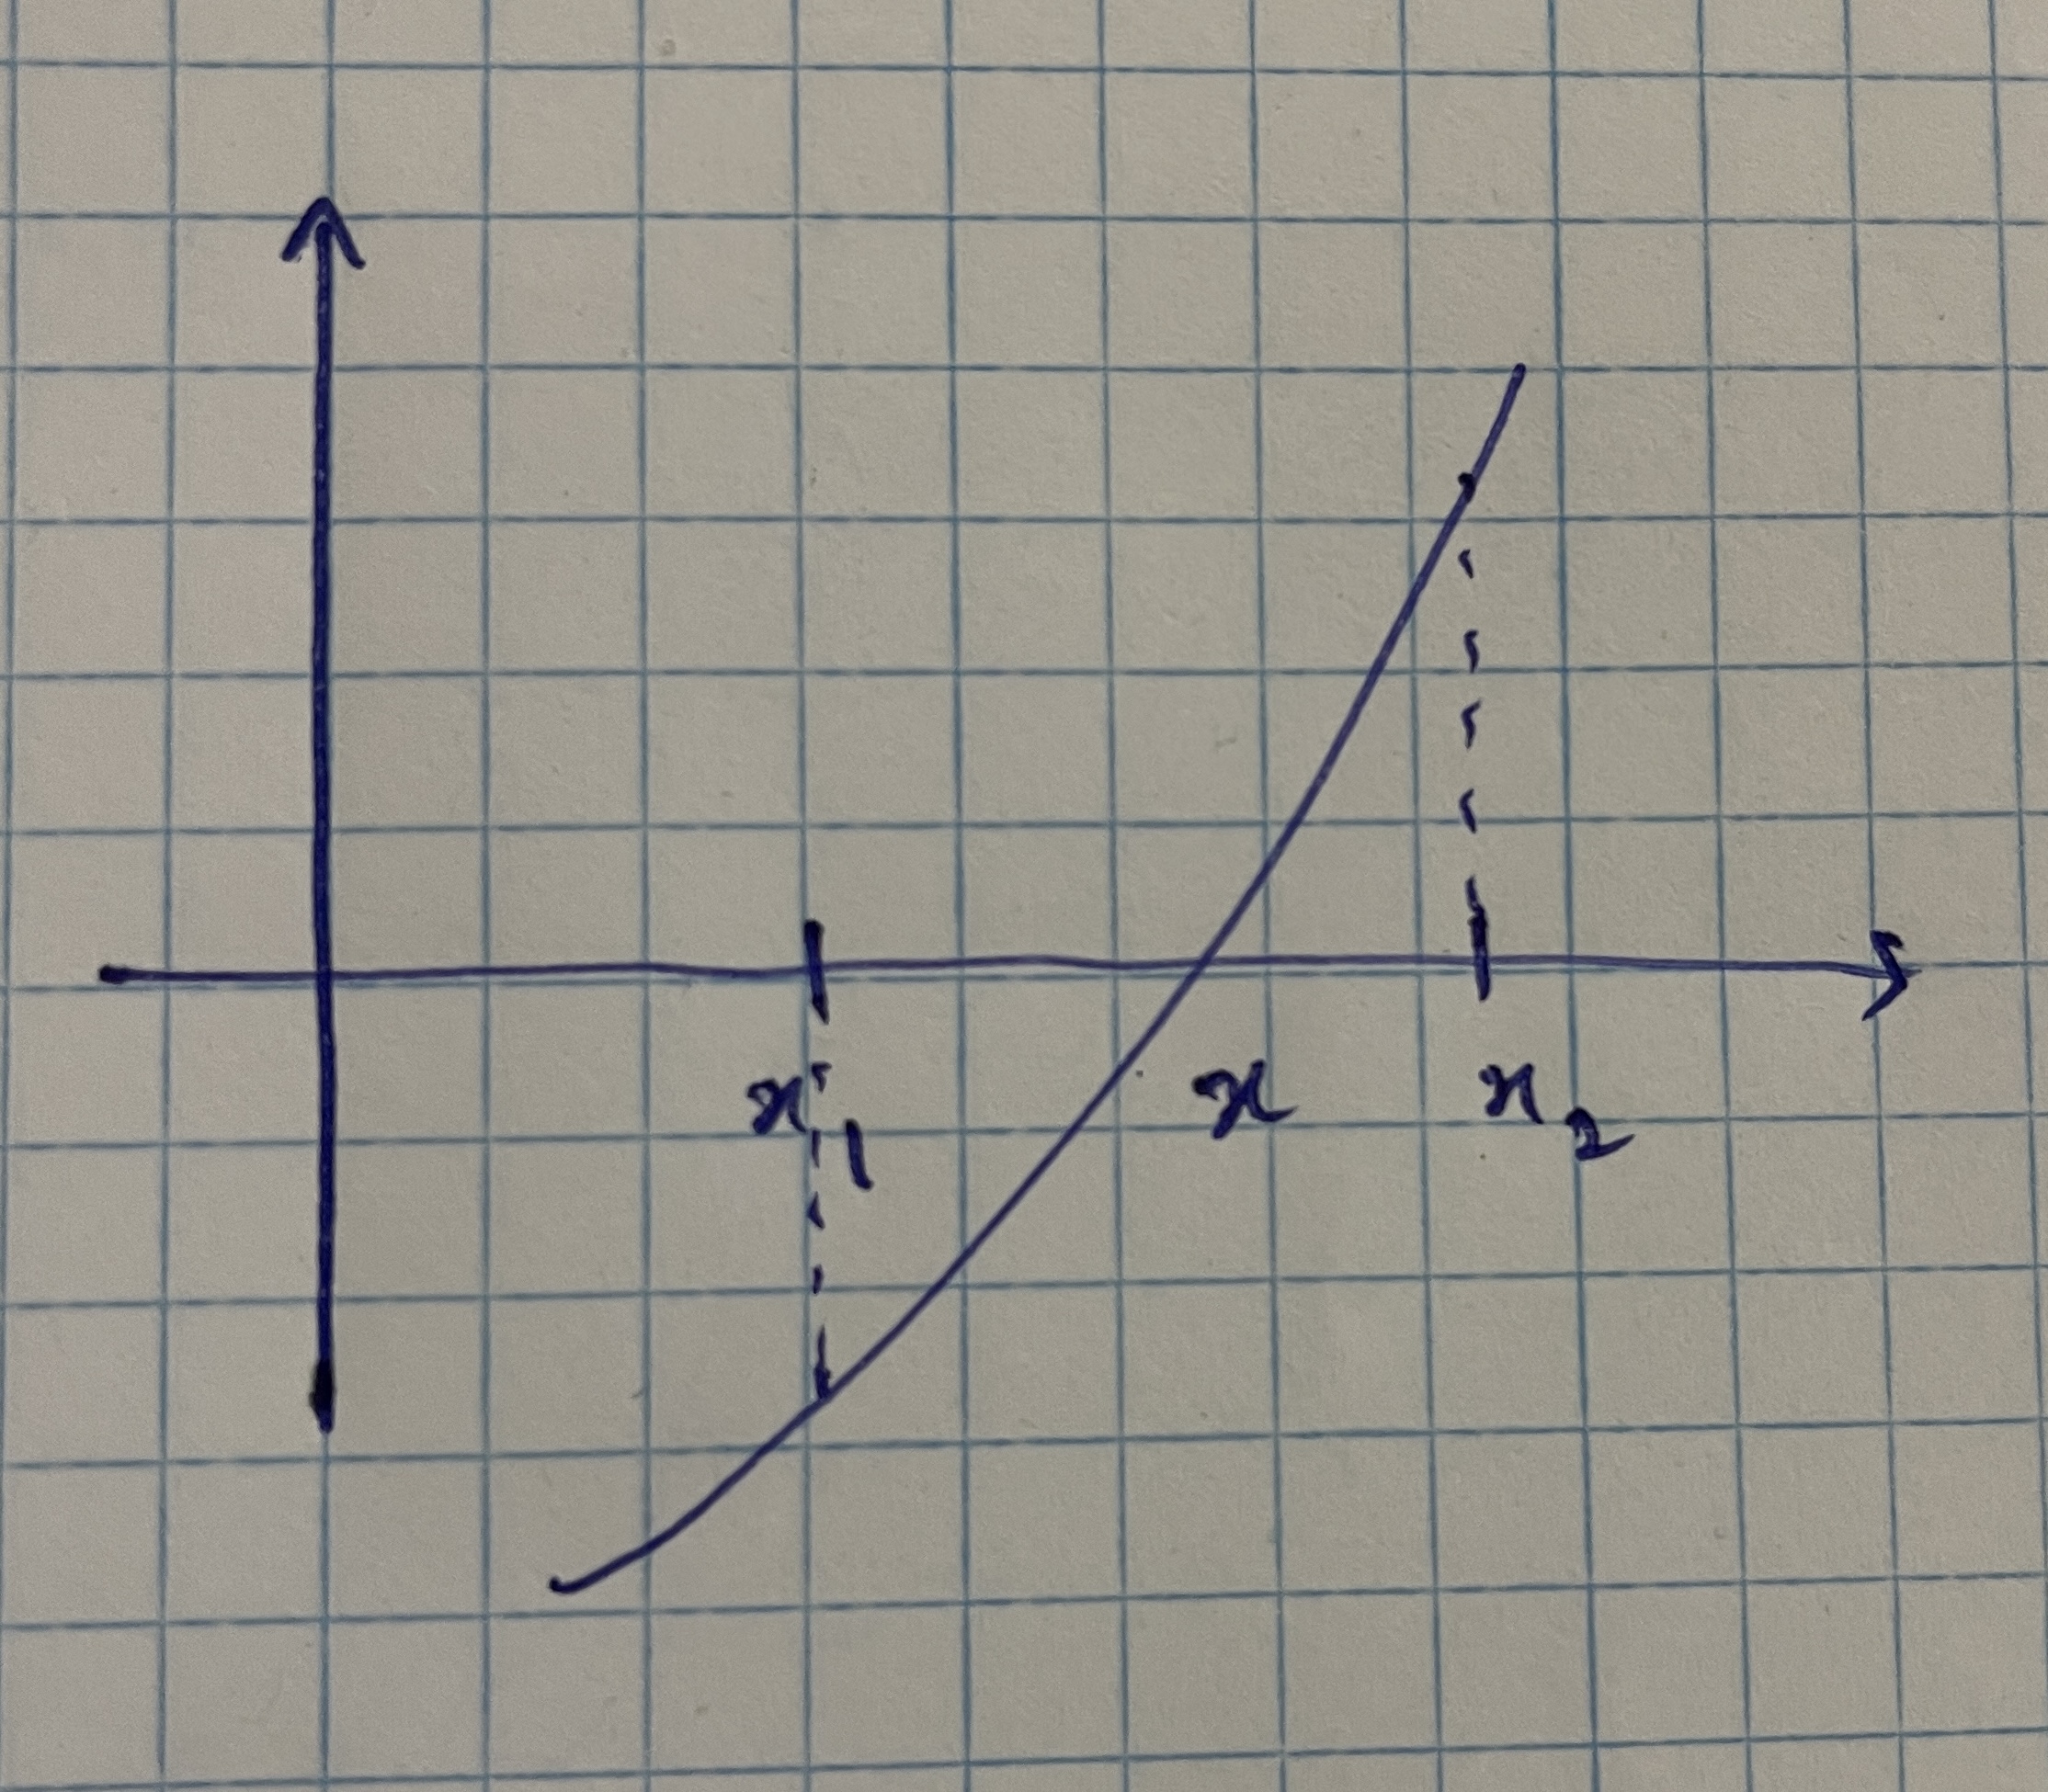 x₁ x x₂